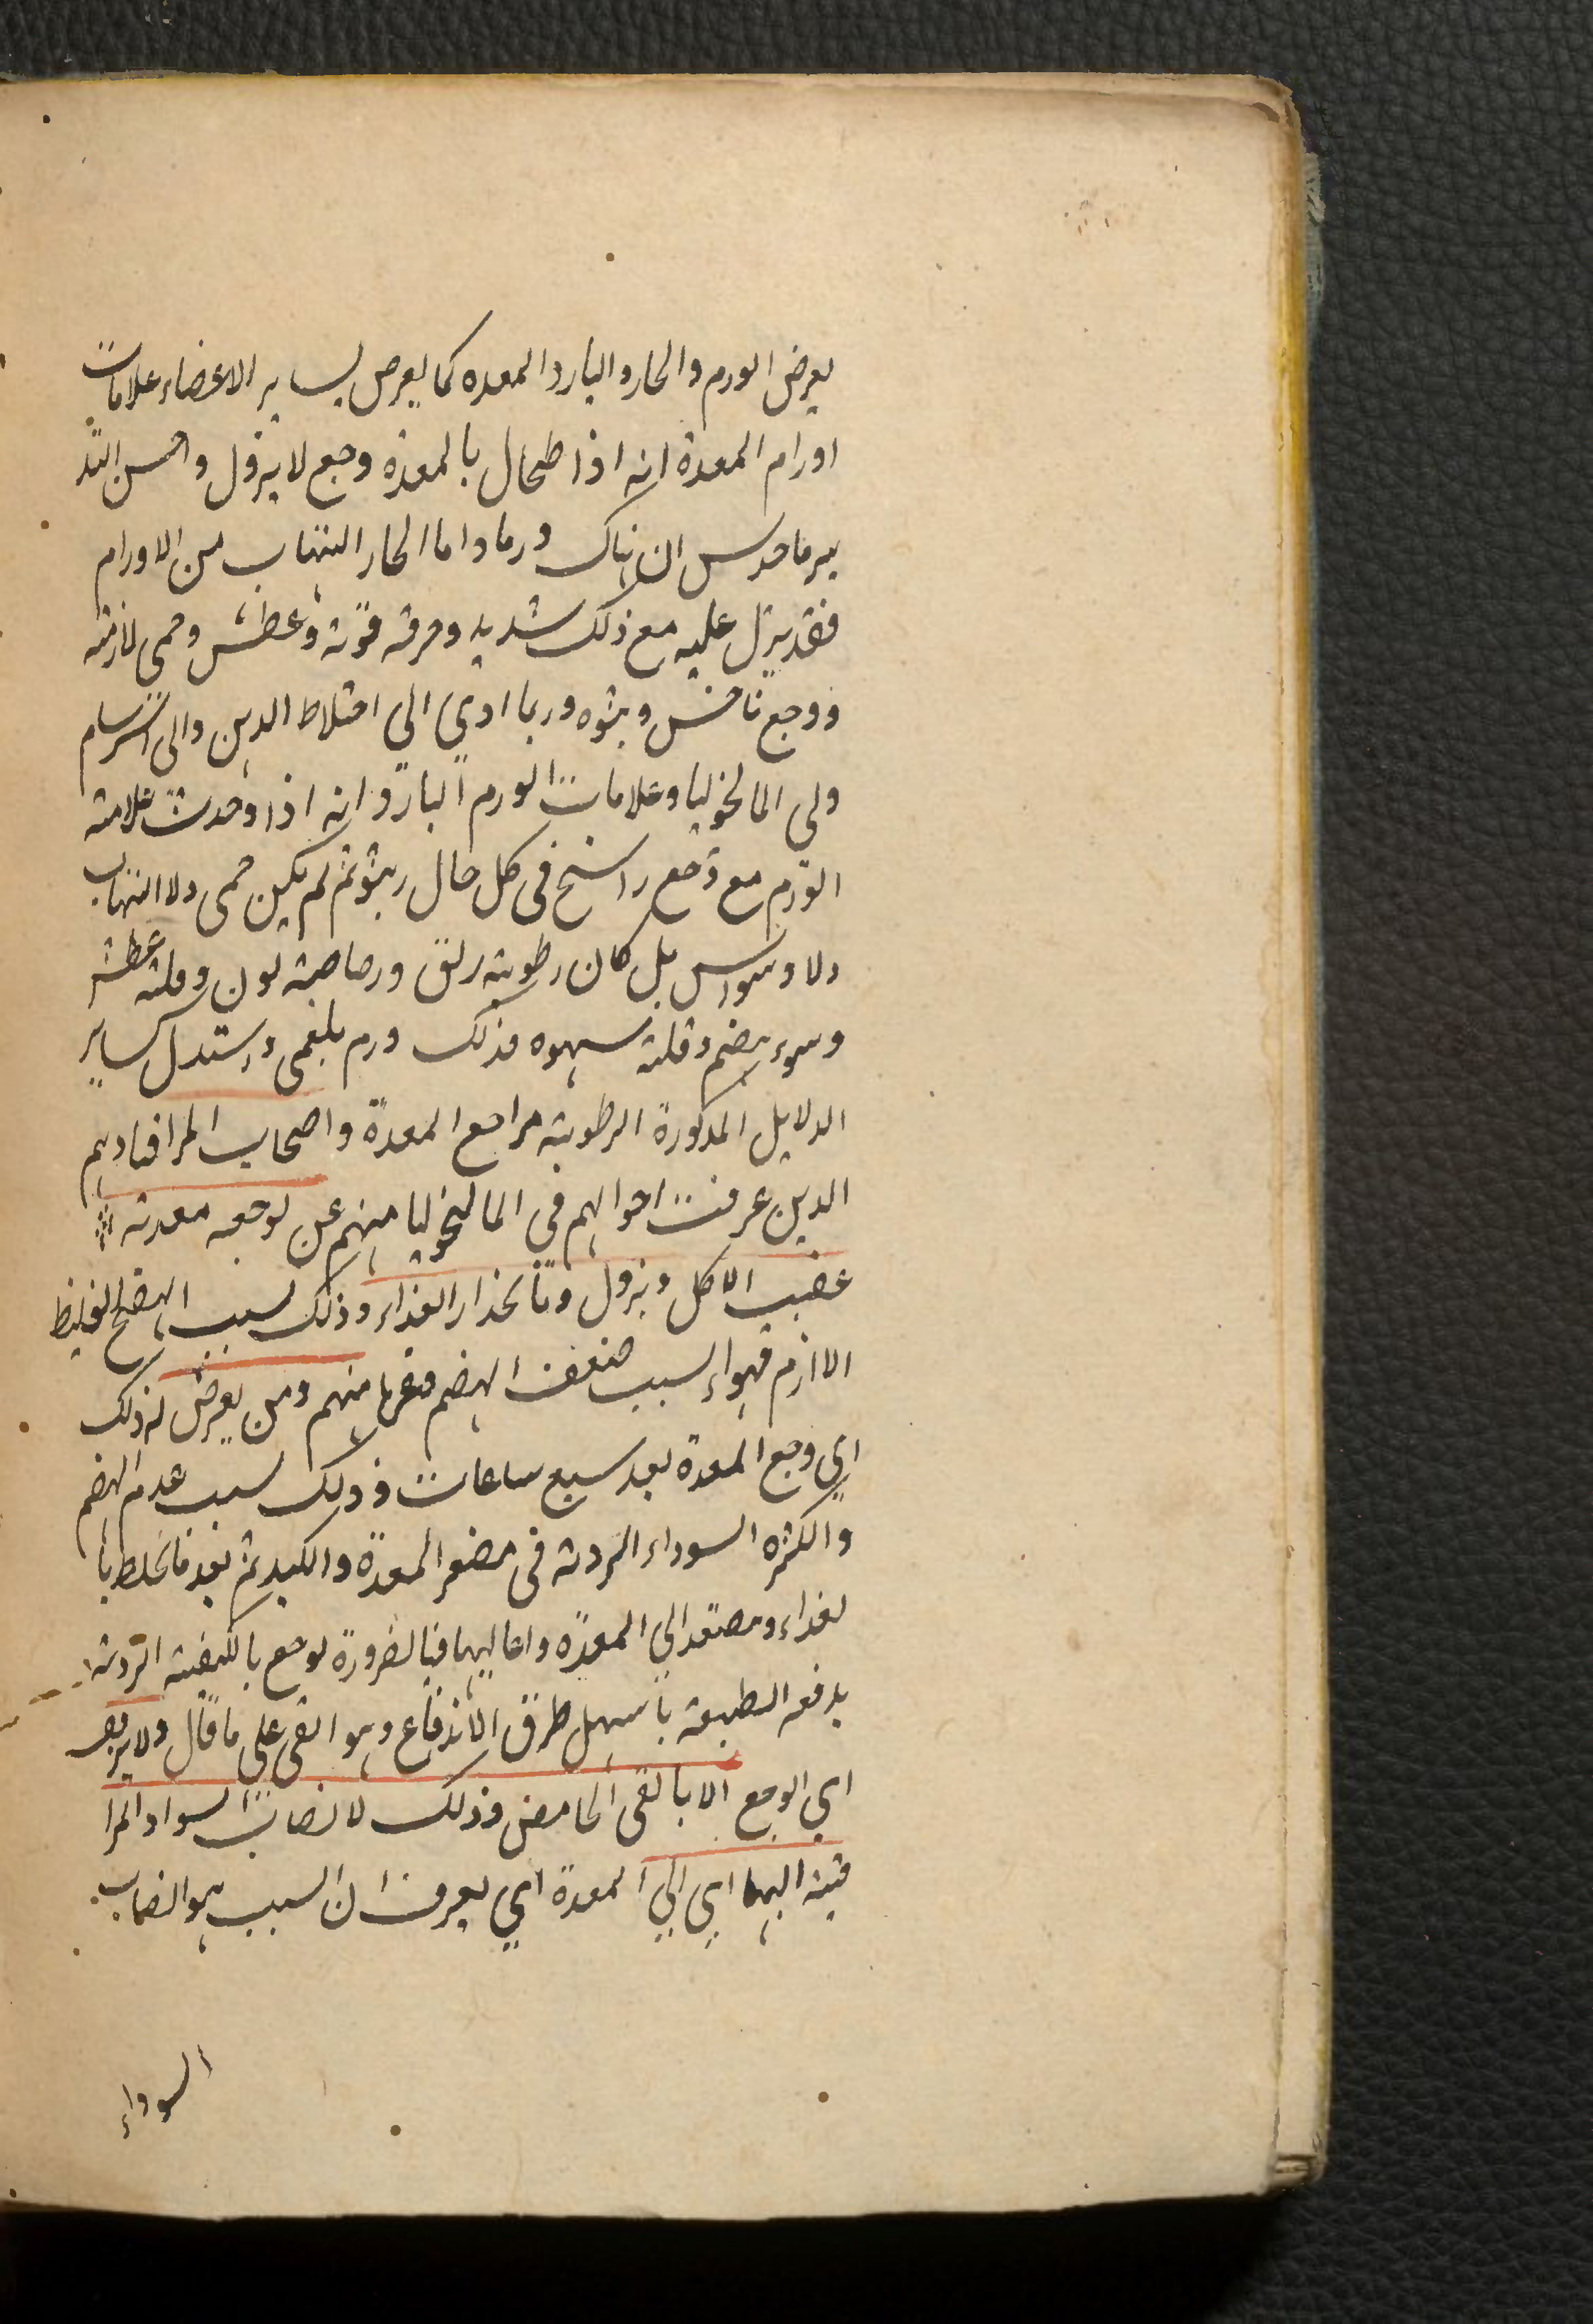 يعرض الورم والحار والبارد المعده كما يعرض لساير الاعضاء علامات
اورام المعدة انه اذا طحال بالمعدة وجع لا يزول واحسن التد
بير ما حدس ان هناك ورما واما الحار التهاب من الاورام
فقد يزل عليه مع ذلك شديد وحرقه قوته وعطش وحمى لازمته
ووجع ناخس وبثوه وربما ادي الي اختلاط الدهن والى السرسام
ولى المالخوليا وعلامات الورم البارد انه اذا وحدث علامته
الورم مع وجع راسخ في كل حال ربثو ثم لم يكن حمى ولا التهاب
ولا وسواس بل كان رطوبته ريق ورصاصية لون وقلته عطش
وسوء هضم وقلته شهوه فذلك ورم بلغمى واستدل بساير
الدلايل المذكورة الرطوبته مراجع المعدة واصحاب المراقيا وهم
الدين عرفت احوالهم في الماليخوليا منهم عن يوجعه معدته
عقيب الاكل ويزول وتانحدار الغذاء وذلك لسبب الهضم الغليظ
الاازم فهواء لسبب ضعف الهضم فتعرها منهم ومن يعرض له ذلك
اي وجع المعدة بعد سبع ساعات وذلك لسبب عدم الهضم
والكثره السوداء الردته في مضعر المعدة والكبد ثم بعد ما تخلط با
لغداء ومصتعد الي المعده واعاليها فبالضرورة يوجع بالكيفيته الردته
يدفعه الطبيعه باسهل طرق الاندفاع وهو القى على ما قال ولا يرفع
اي الوجع الا بالقى الحامض وذلك لانصاب السواد المرا
قيته اليها اي الي المعدة اي يعرف ان السبب هو انصاب
السوداء